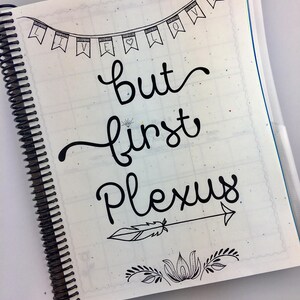 but
first
Plexus